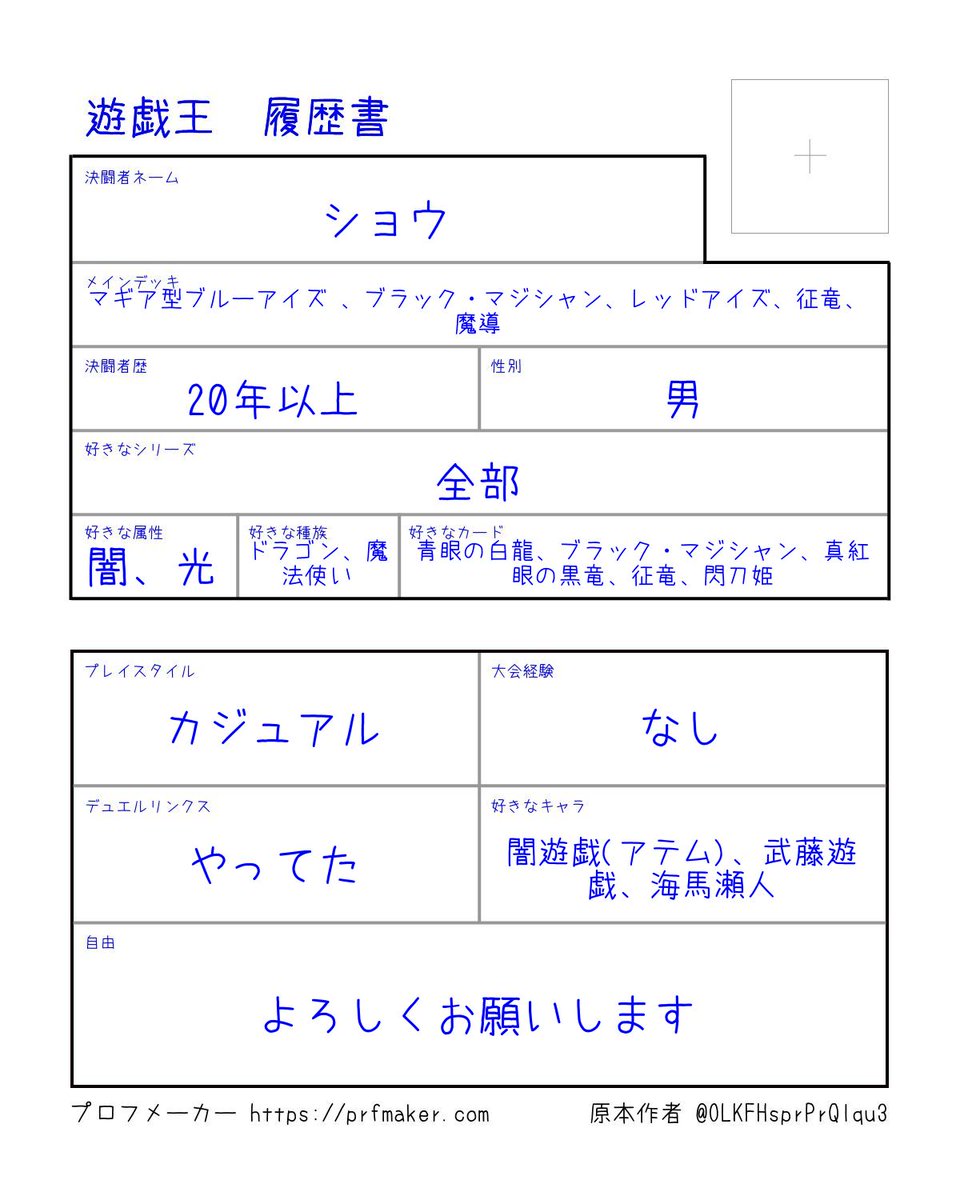 遊戯王　履歴書
決闘者ネーム
ショウ
メインデッキ
マギア型ブルーアイズ 、ブラック・マジシャン、レッドアイズ、征竜、
魔導
決闘者歴
20年以上
性別
男
好きなシリーズ
全部
好きな属性
闇、光
好きな種族
ドラゴン、魔
法使い
好きなカード
青眼の白龍、ブラック・マジシャン、真紅
眼の黒竜、征竜、閃刀姫
プレイスタイル
カジュアル
大会経験
なし
デュエルリンクス
やってた
好きなキャラ
闇遊戯(アテム)、武藤遊
戯、海馬瀬人
自由
よろしくお願いします
プロフメーカー https://prfmaker.com
原本作者 @OLKFHsprPrQlqu3